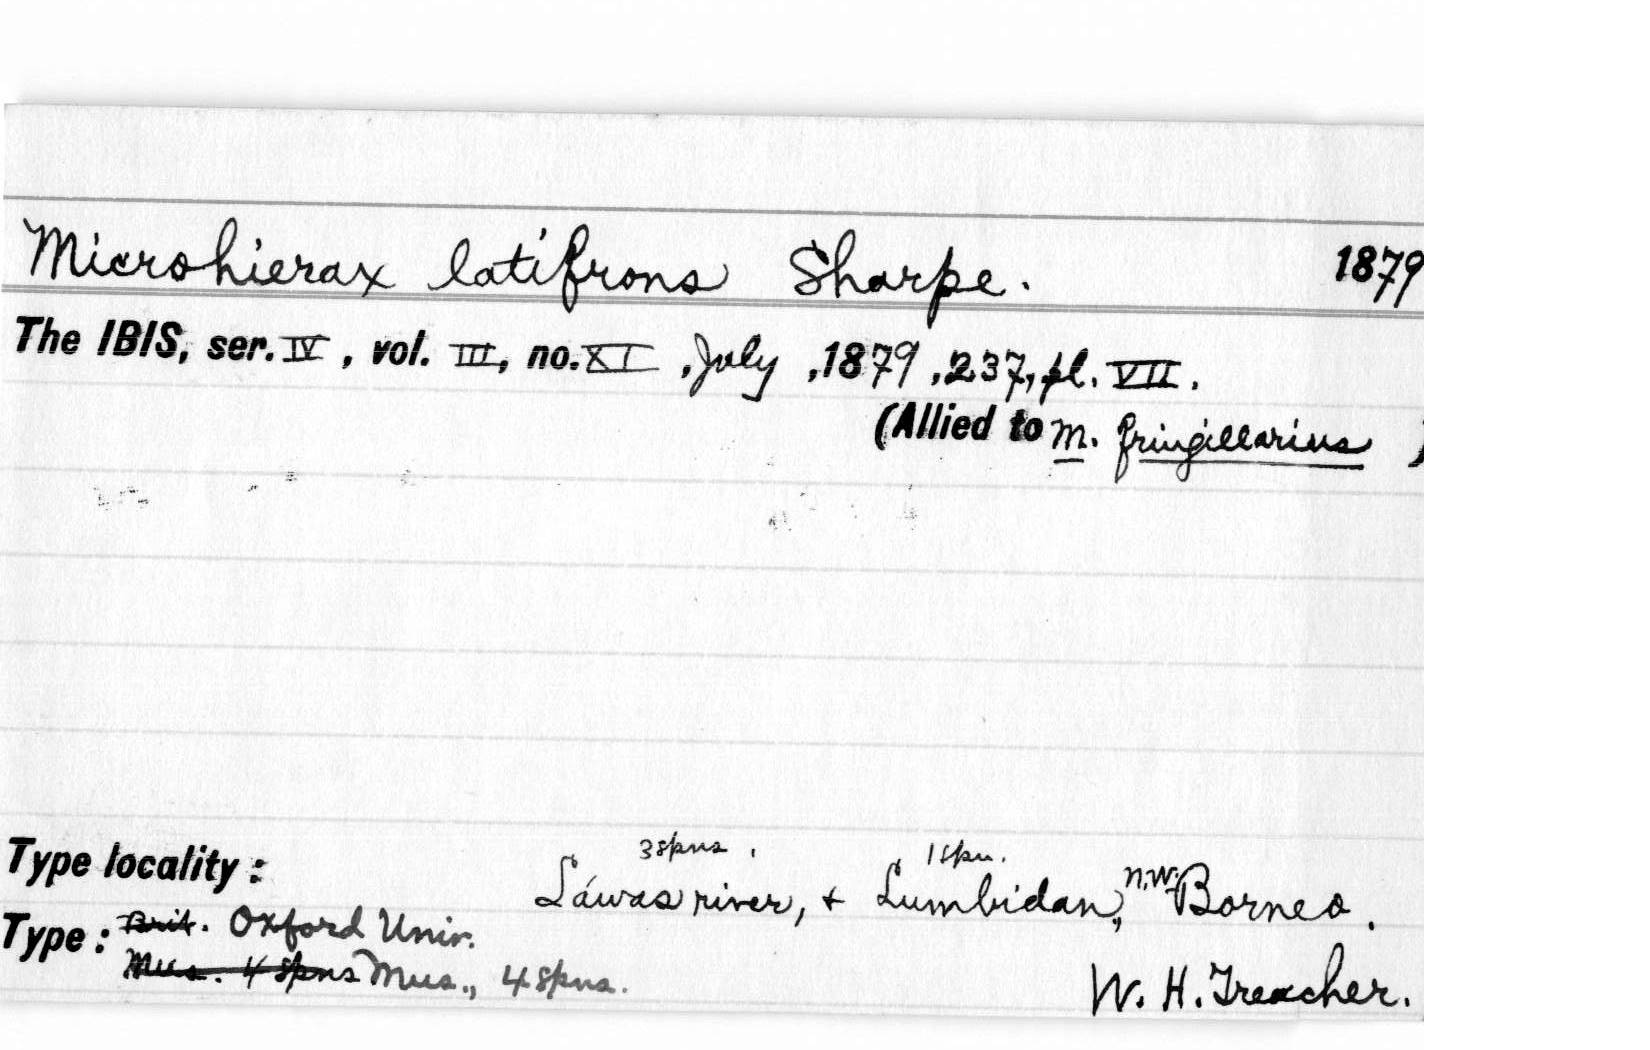 Microhierax latifrons Sharpe. 1879
The IBIS, ser. IV, vol. III, no. XI, July, 1879, 237, pl. VII.
(Allied to M. fringillarius )
3 spns. 1 spn.
Type locality: Láwas river, + Lumbidan, N.W. Borneo.
Type: Brit. Oxford Univ.
Mus. 4 spns Mus., 4 spns.
W. H. Treacher.